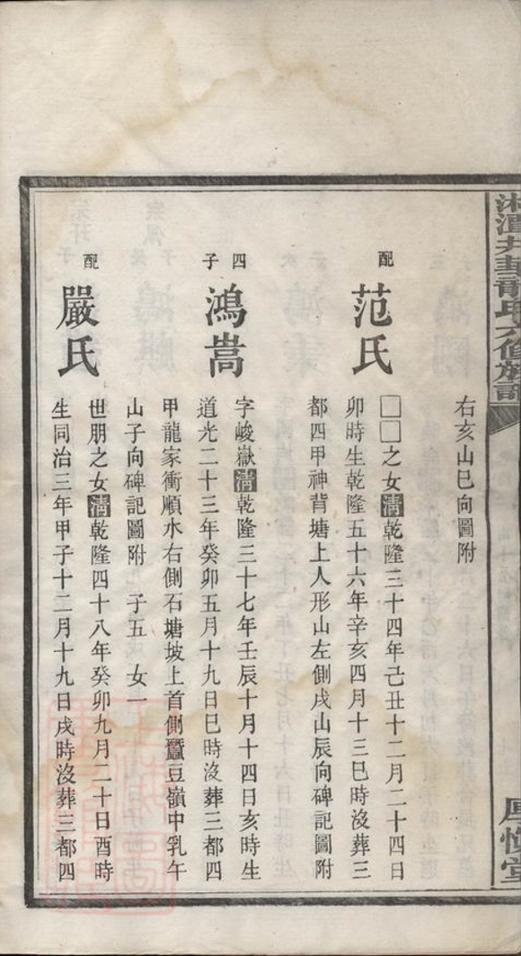 湘潭井華龍氏六修族譜
厚愼堂
右亥山巳向圖附
配
范氏
□□之女清乾隆三十四年己丑十二月二十四日
卯時生乾隆五十六年辛亥四月十三巳時沒葬三
都四甲神背塘上人形山左側戌山辰向碑記圖附
四
子
鴻嵩
字峻嶽清乾隆三十七年壬辰十月十四日亥時生
道光二十三年癸卯五月十九日巳時沒葬三都四
甲龍家衝順水右側石塘坡上首側蠶豆嶺中乳午
山子向碑記圖附 子五 女一
配
嚴氏
世朋之女清乾隆四十八年癸卯九月二十日酉時
生同治三年甲子十二月十九日戌時沒葬三都四